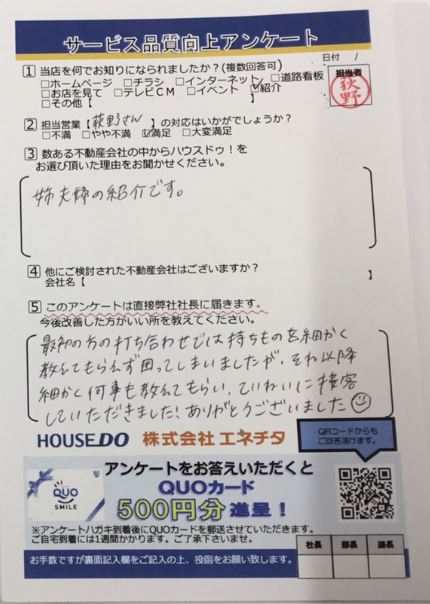 サービス品質向上アンケート
日付 /
1 当店を何でお知りになられましたか?(複数回答可)
□ホームページ □チラシ □インターネット □道路看板
□お店を見て □テレビCM □イベント ☑紹介
□その他【 】
担当者
荻野
2 担当営業【荻野さん】の対応はいかがでしょうか?
□不満 □やや不満 ☑満足 □大変満足
3 数ある不動産会社の中からハウスドゥ!を
お選び頂いた理由をお聞かせください。
姉夫婦の紹介です。
4 他にご検討された不動産会社はございますか?
会社名【 】
5 このアンケートは直接弊社社長に届きます。
今後改善した方がいい所を教えてください。
最初の方の打ち合わせでは持ちものを細かく
教えてもらえず困ってしまいましたが、それ以降
細かく何事も教えてもらい、ていねいに接客
していただきました!ありがとうございました☺
HOUSEDO 株式会社 エネチタ
QRコードからも
ご回答頂けます。
QUO
SMILE
アンケートをお答えいただくと
QUOカード
500円分進呈!
※アンケートハガキ到着後にQUOカードを郵送させていただきます。
ご自宅到着には1週間かかります。ご了承下さいませ。
お手数ですが裏面記入欄をご記入の上、投函をお願い致します。
社長 部長 課長